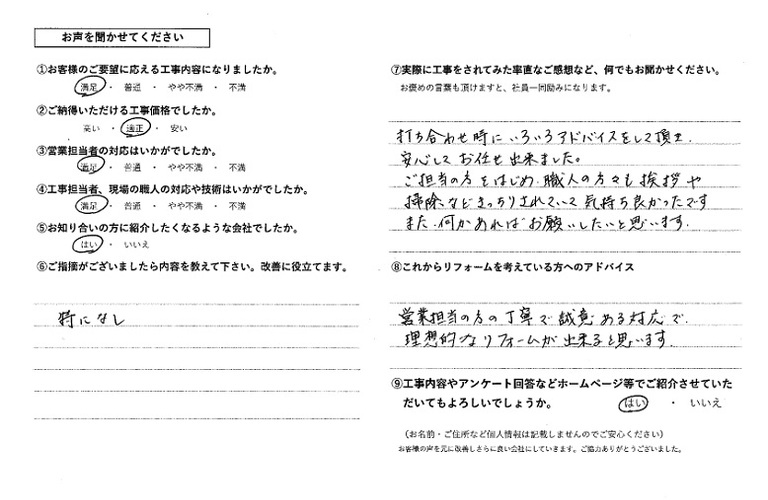 お声を聞かせてください
①お客様のご要望に応える工事内容になりましたか。
満足 ・ 普通 ・ やや不満 ・ 不満
②ご納得いただける工事価格でしたか。
高い ・ 適正 ・ 安い
③営業担当者の対応はいかがでしたか。
満足 ・ 普通 ・ やや不満 ・ 不満
④工事担当者、現場の職人の対応や技術はいかがでしたか。
満足 ・ 普通 ・ やや不満 ・ 不満
⑤お知り合いの方に紹介したくなるような会社でしたか。
はい ・ いいえ
⑥ご指摘がございましたら内容を教えて下さい。改善に役立てます。
特になし
⑦実際に工事をされてみた率直なご感想など、何でもお聞かせください。
お褒めの言葉も頂けますと、社員一同励みになります。
打ち合わせ時にいろいろアドバイスをして頂き、
安心してお任せ出来ました。
ご担当の方をはじめ、職人の方々も挨拶や
掃除などきっちりされていて気持ち良かったです
また、何かあればお願いしたいと思います。
⑧これからリフォームを考えている方へのアドバイス
営業担当の方の丁寧で誠意ある対応で、
理想的なリフォームが出来ると思います。
⑨工事内容やアンケート回答などホームページ等でご紹介させていた
だいてもよろしいでしょうか。 はい ・ いいえ
(お名前・ご住所など個人情報は記載しませんのでご安心ください)
お客様の声を元に改善しさらに良い会社にしていきます。ご協力ありがとうございました。